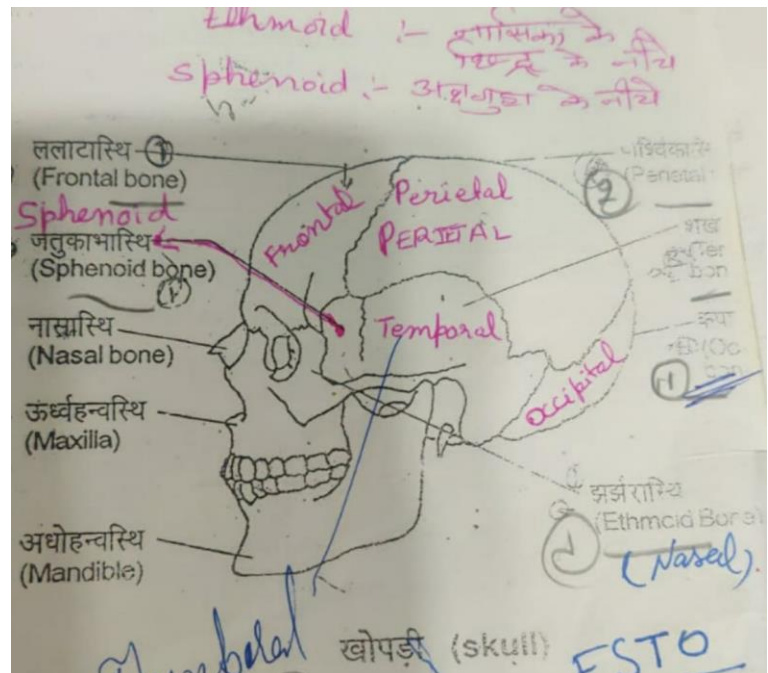 Ethmoid :- नासिका के
छिद्र के नीचे
Sphenoid :- अक्षगुहा के नीचे
ललाटास्थि 1
(Frontal bone)
Sphenoid
जतुकाभास्थि
(Sphenoid bone)
नासास्थि
(Nasal bone)
ऊर्ध्वहन्वस्थि
(Maxilla)
अधोहन्वस्थि
(Mandible)
Frontal
Perietal
PERIETAL
Temporal
Occipital
2
(Parietal
शंख
bon
कपा
1
झर्झरास्थि
(Ethmoid Bone)
1
(Nasal).
खोपड़ी (skull)
ESTO